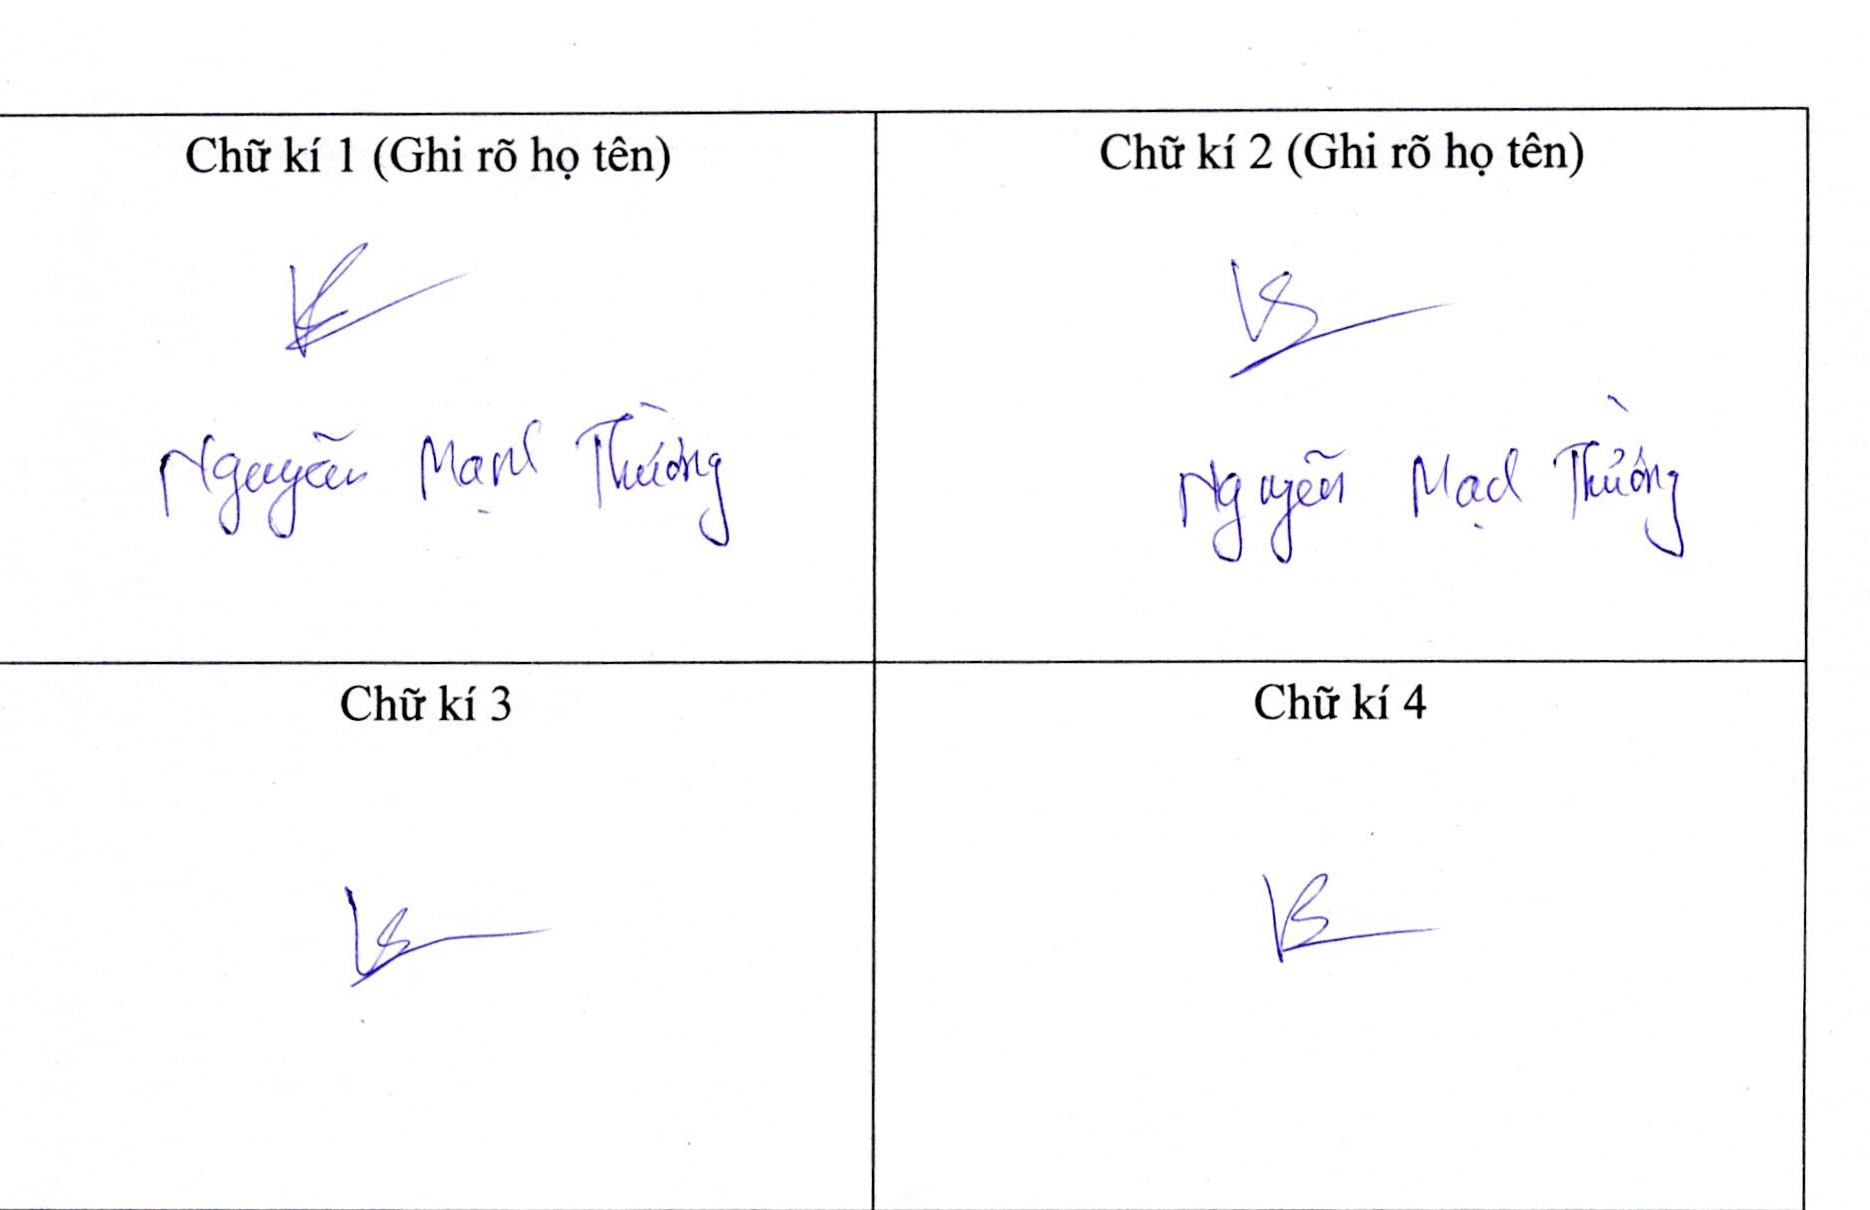 Chữ kí 1 (Ghi rõ họ tên)
Chữ kí 2 (Ghi rõ họ tên)
Nguyễn Mạnh Thường
Nguyễn Mạnh Thường
Chữ kí 3
Chữ kí 4